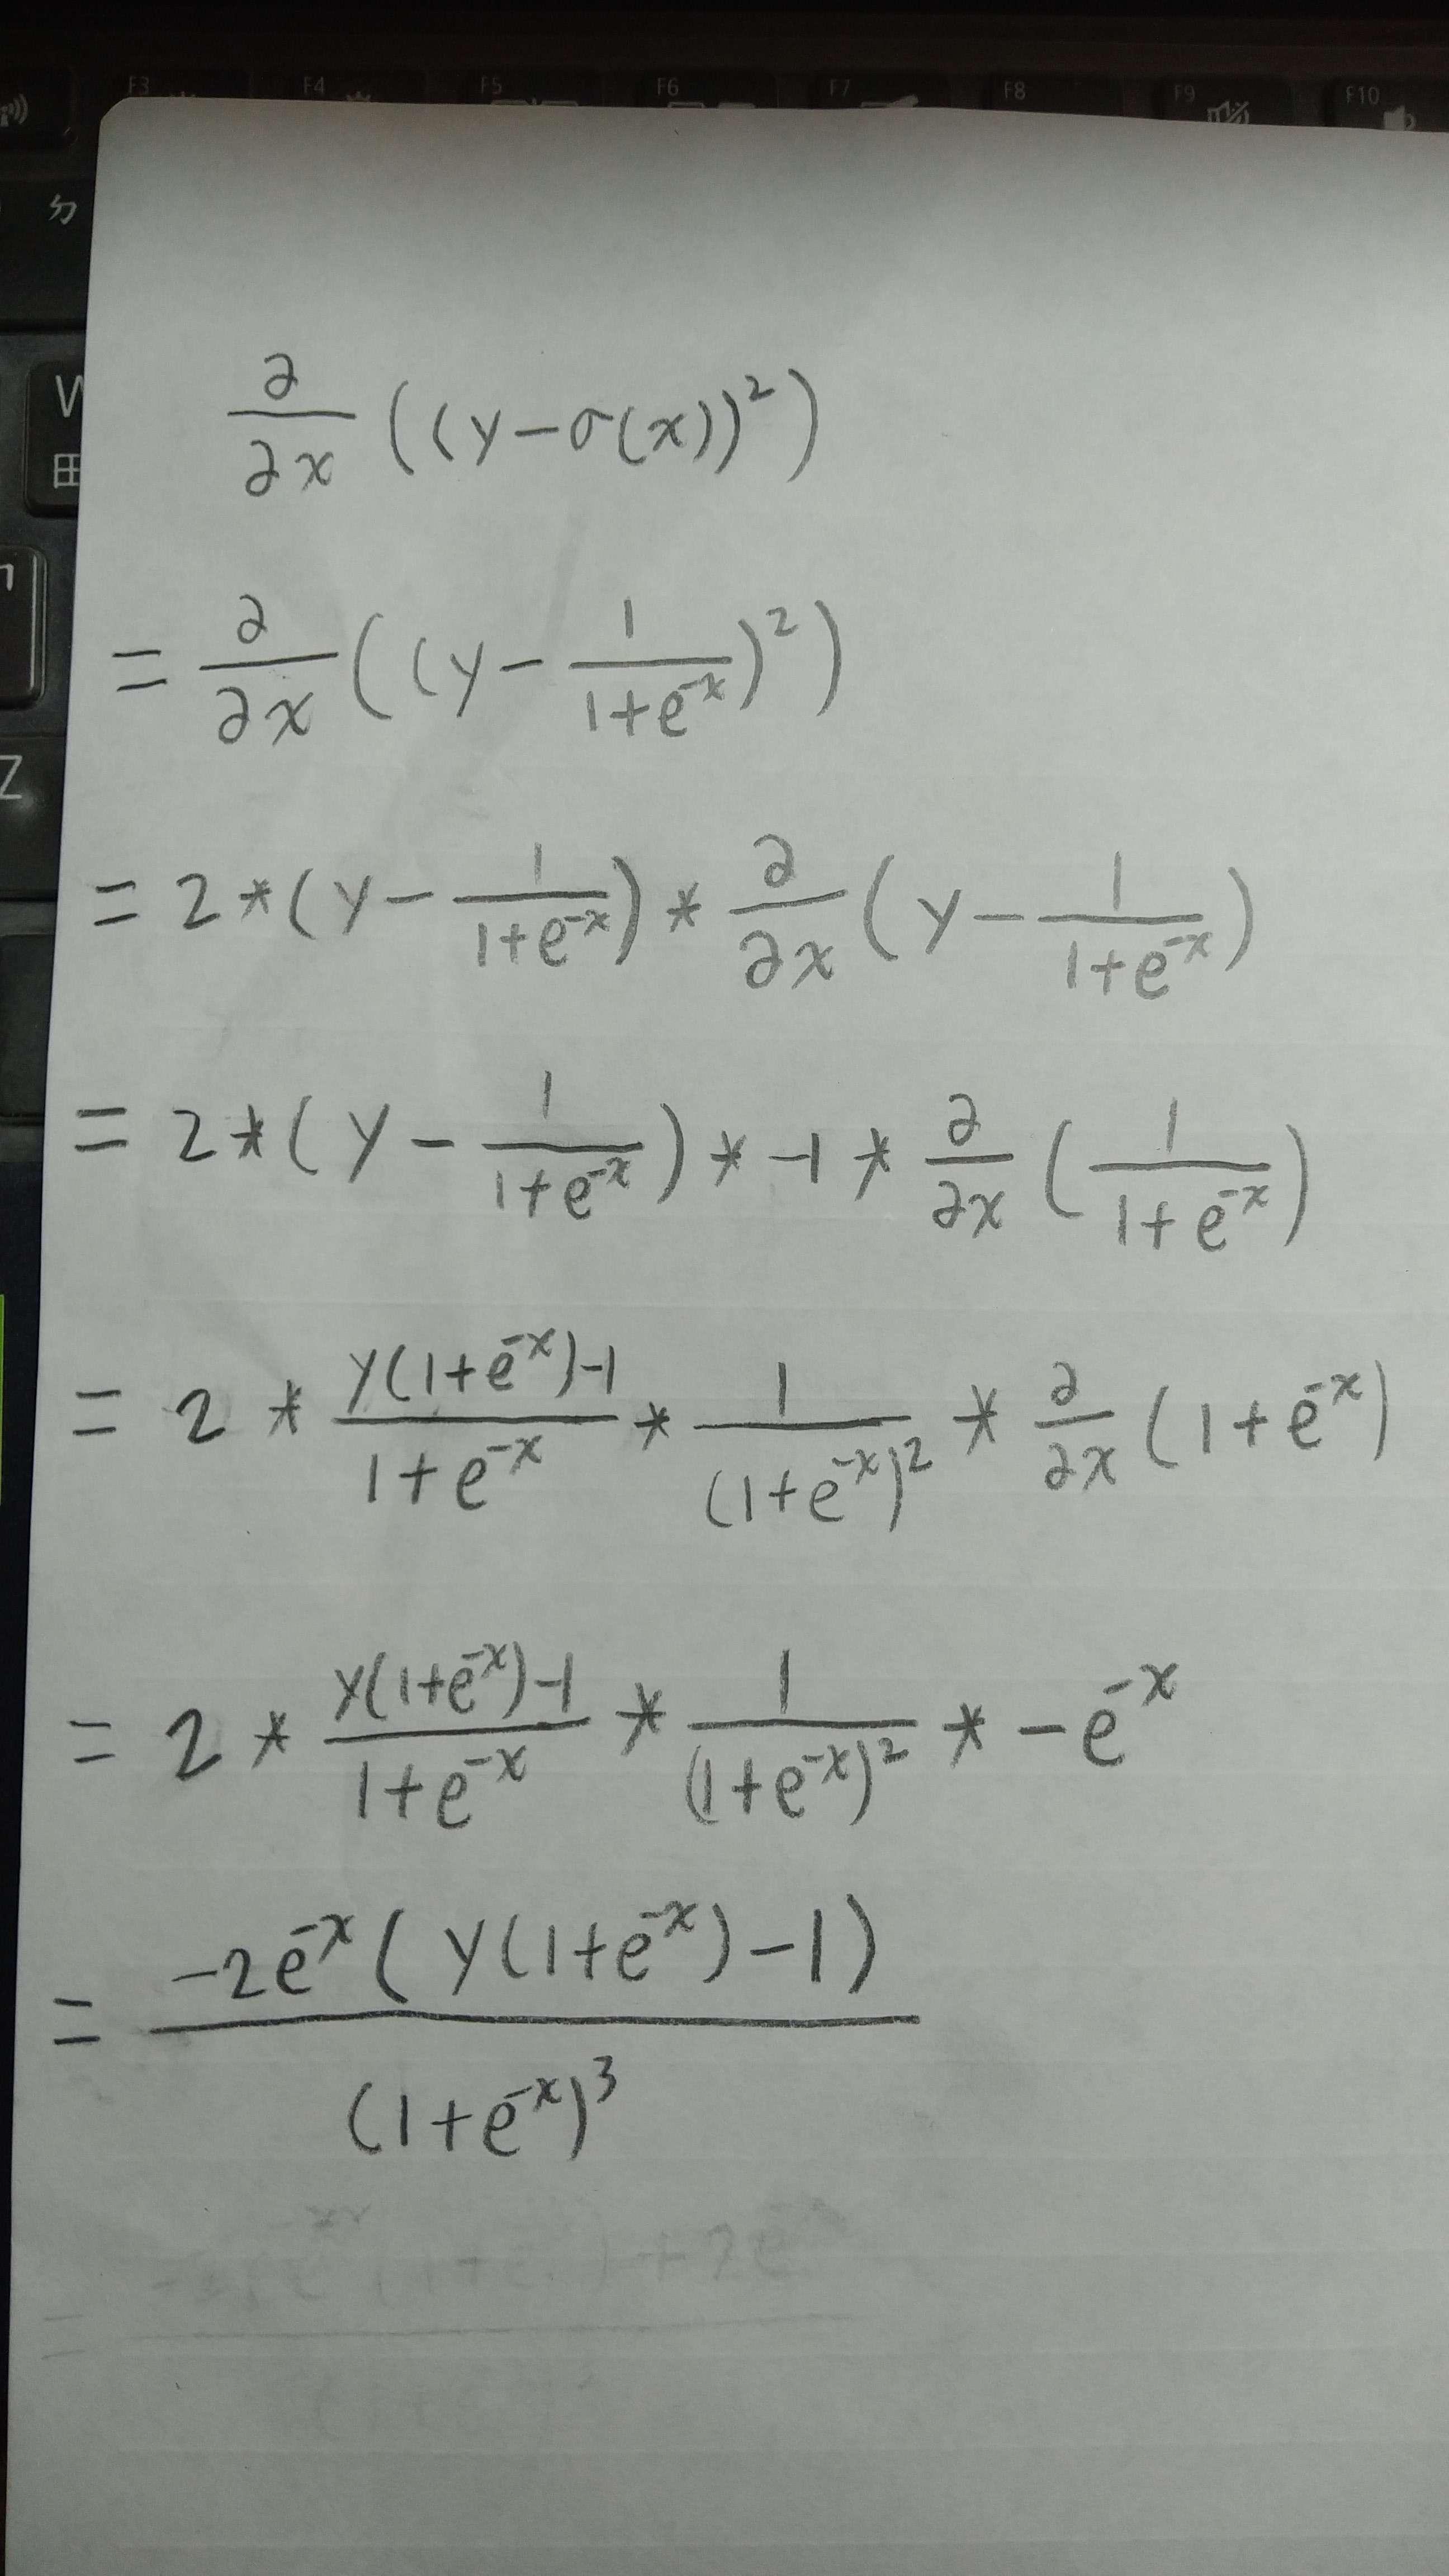 F3 F4 F5 F6 F7 F8 F9 F10
ㄉ
W
田
Z
∂/∂x ((y-σ(x))²)
= ∂/∂x ((y - 1/(1+e^-x))²)
= 2*(y - 1/(1+e^-x)) * ∂/∂x (y - 1/(1+e^-x))
= 2*(y - 1/(1+e^-x)) * -1 * ∂/∂x (1/(1+e^-x))
= 2 * (y(1+e^-x)-1)/(1+e^-x) * 1/(1+e^-x)² * ∂/∂x (1+e^-x)
= 2 * (y(1+e^-x)-1)/(1+e^-x) * 1/(1+e^-x)² * -e^-x
= -2e^-x (y(1+e^-x)-1)/(1+e^-x)³